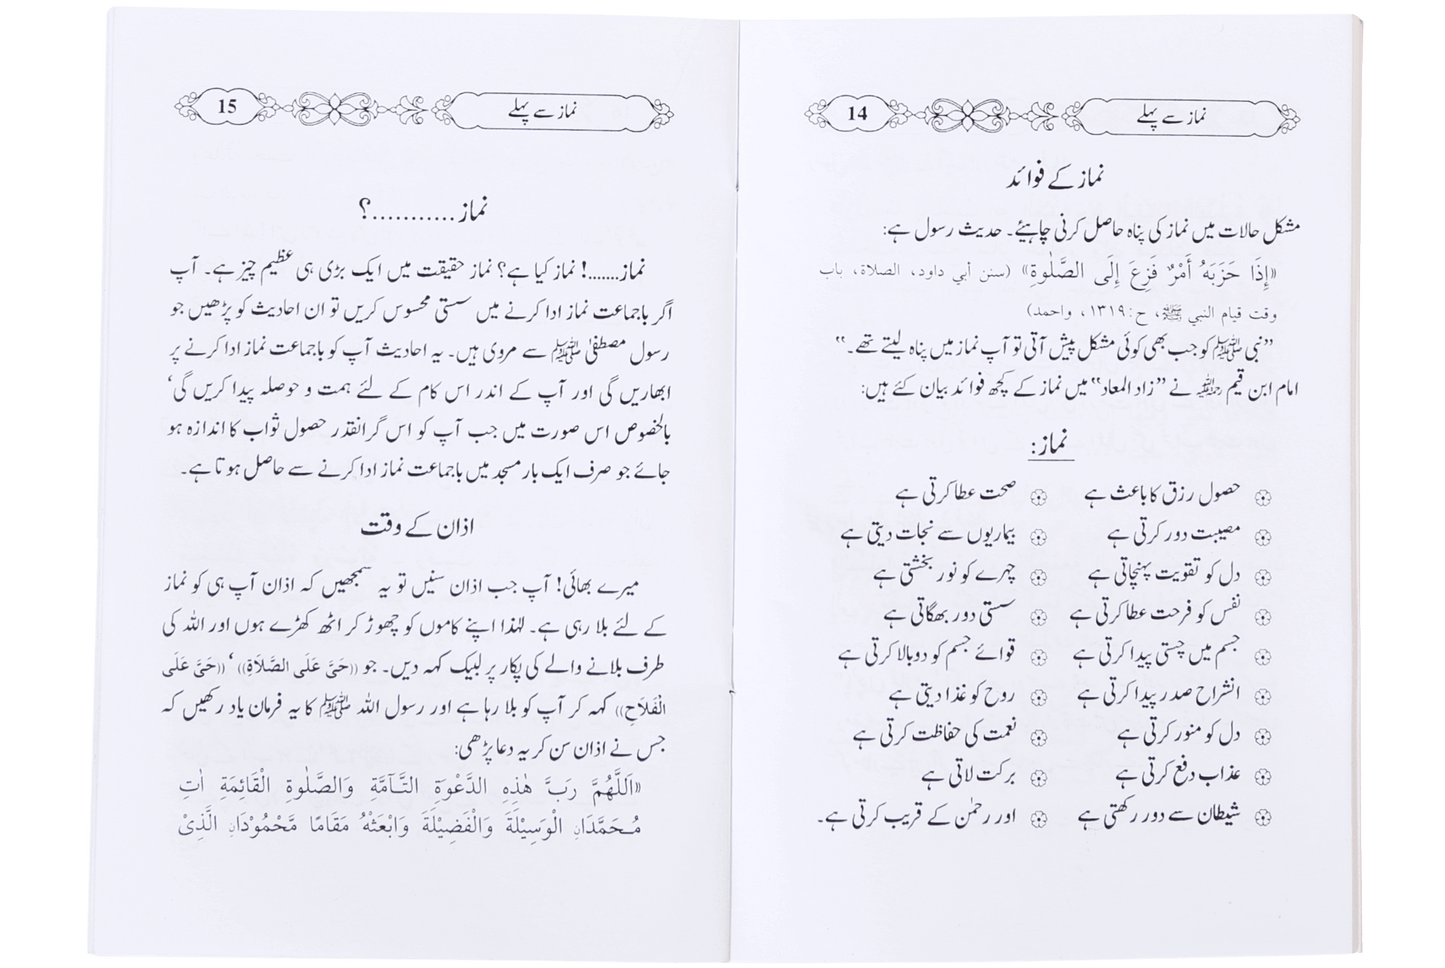 نماز سے پہلے
14
نماز کے فوائد
مشکل حالات میں نماز کی پناہ حاصل کرنی چاہیئے۔ حدیث رسول ہے:
«إِذَا حَزَبَهُ أَمْرٌ فَزِعَ إِلَى الصَّلٰوةِ» (سنن أبي داود، الصلاة، باب
وقت قيام النبي ﷺ، ح:١٣١٩، واحمد)
”نبی ﷺ کو جب بھی کوئی مشکل پیش آتی تو آپ نماز میں پناہ لیتے تھے۔“
امام ابن قیم رحمہ اللہ نے ”زاد المعاد“ میں نماز کے کچھ فوائد بیان کئے ہیں:
نماز:
حصول رزق کا باعث ہے صحت عطا کرتی ہے
مصیبت دور کرتی ہے بیماریوں سے نجات دیتی ہے
دل کو تقویت پہنچاتی ہے چہرے کو نور بخشتی ہے
نفس کو فرحت عطا کرتی ہے سستی دور بھگاتی ہے
جسم میں چستی پیدا کرتی ہے قوائے جسم کو دوبالا کرتی ہے
انشراح صدر پیدا کرتی ہے روح کو غذا دیتی ہے
دل کو منور کرتی ہے نعمت کی حفاظت کرتی ہے
عذاب دفع کرتی ہے برکت لاتی ہے
شیطان سے دور رکھتی ہے اور رحمٰن کے قریب کرتی ہے۔
نماز سے پہلے
15
نماز ...........؟
نماز.......! نماز کیا ہے؟ نماز حقیقت میں ایک بڑی ہی عظیم چیز ہے۔ آپ
اگر باجماعت نماز ادا کرنے میں سستی محسوس کریں تو ان احادیث کو پڑھیں جو
رسول مصطفیٰ ﷺ سے مروی ہیں۔ یہ احادیث آپ کو باجماعت نماز ادا کرنے پر
ابھاریں گی اور آپ کے اندر اس کام کے لئے ہمت و حوصلہ پیدا کریں گی‘
بالخصوص اس صورت میں جب آپ کو اس گرانقدر حصول ثواب کا اندازہ ہو
جائے جو صرف ایک بار مسجد میں باجماعت نماز ادا کرنے سے حاصل ہوتا ہے۔
اذان کے وقت
میرے بھائی! آپ جب اذان سنیں تو یہ سمجھیں کہ اذان آپ ہی کو نماز
کے لئے بلا رہی ہے۔ لہٰذا اپنے کاموں کو چھوڑ کر اٹھ کھڑے ہوں اور اللہ کی
طرف بلانے والے کی پکار پر لبیک کہہ دیں۔ جو ((حَيَّ عَلَى الصَّلاَةِ))‘ ((حَيَّ عَلَى
الْفَلاَحِ)) کہہ کر آپ کو بلا رہا ہے اور رسول اللہ ﷺ کا یہ فرمان یاد رکھیں کہ
جس نے اذان سن کر یہ دعا پڑھی:
«اَللّٰهُمَّ رَبَّ هٰذِهِ الدَّعْوَةِ التَّآمَّةِ وَالصَّلٰوةِ الْقَائِمَةِ اٰتِ
مُحَمَّدَانِ الْوَسِيْلَةَ وَالْفَضِيْلَةَ وَابْعَثْهُ مَقَامًا مَّحْمُوْدَانِ الَّذِيْ